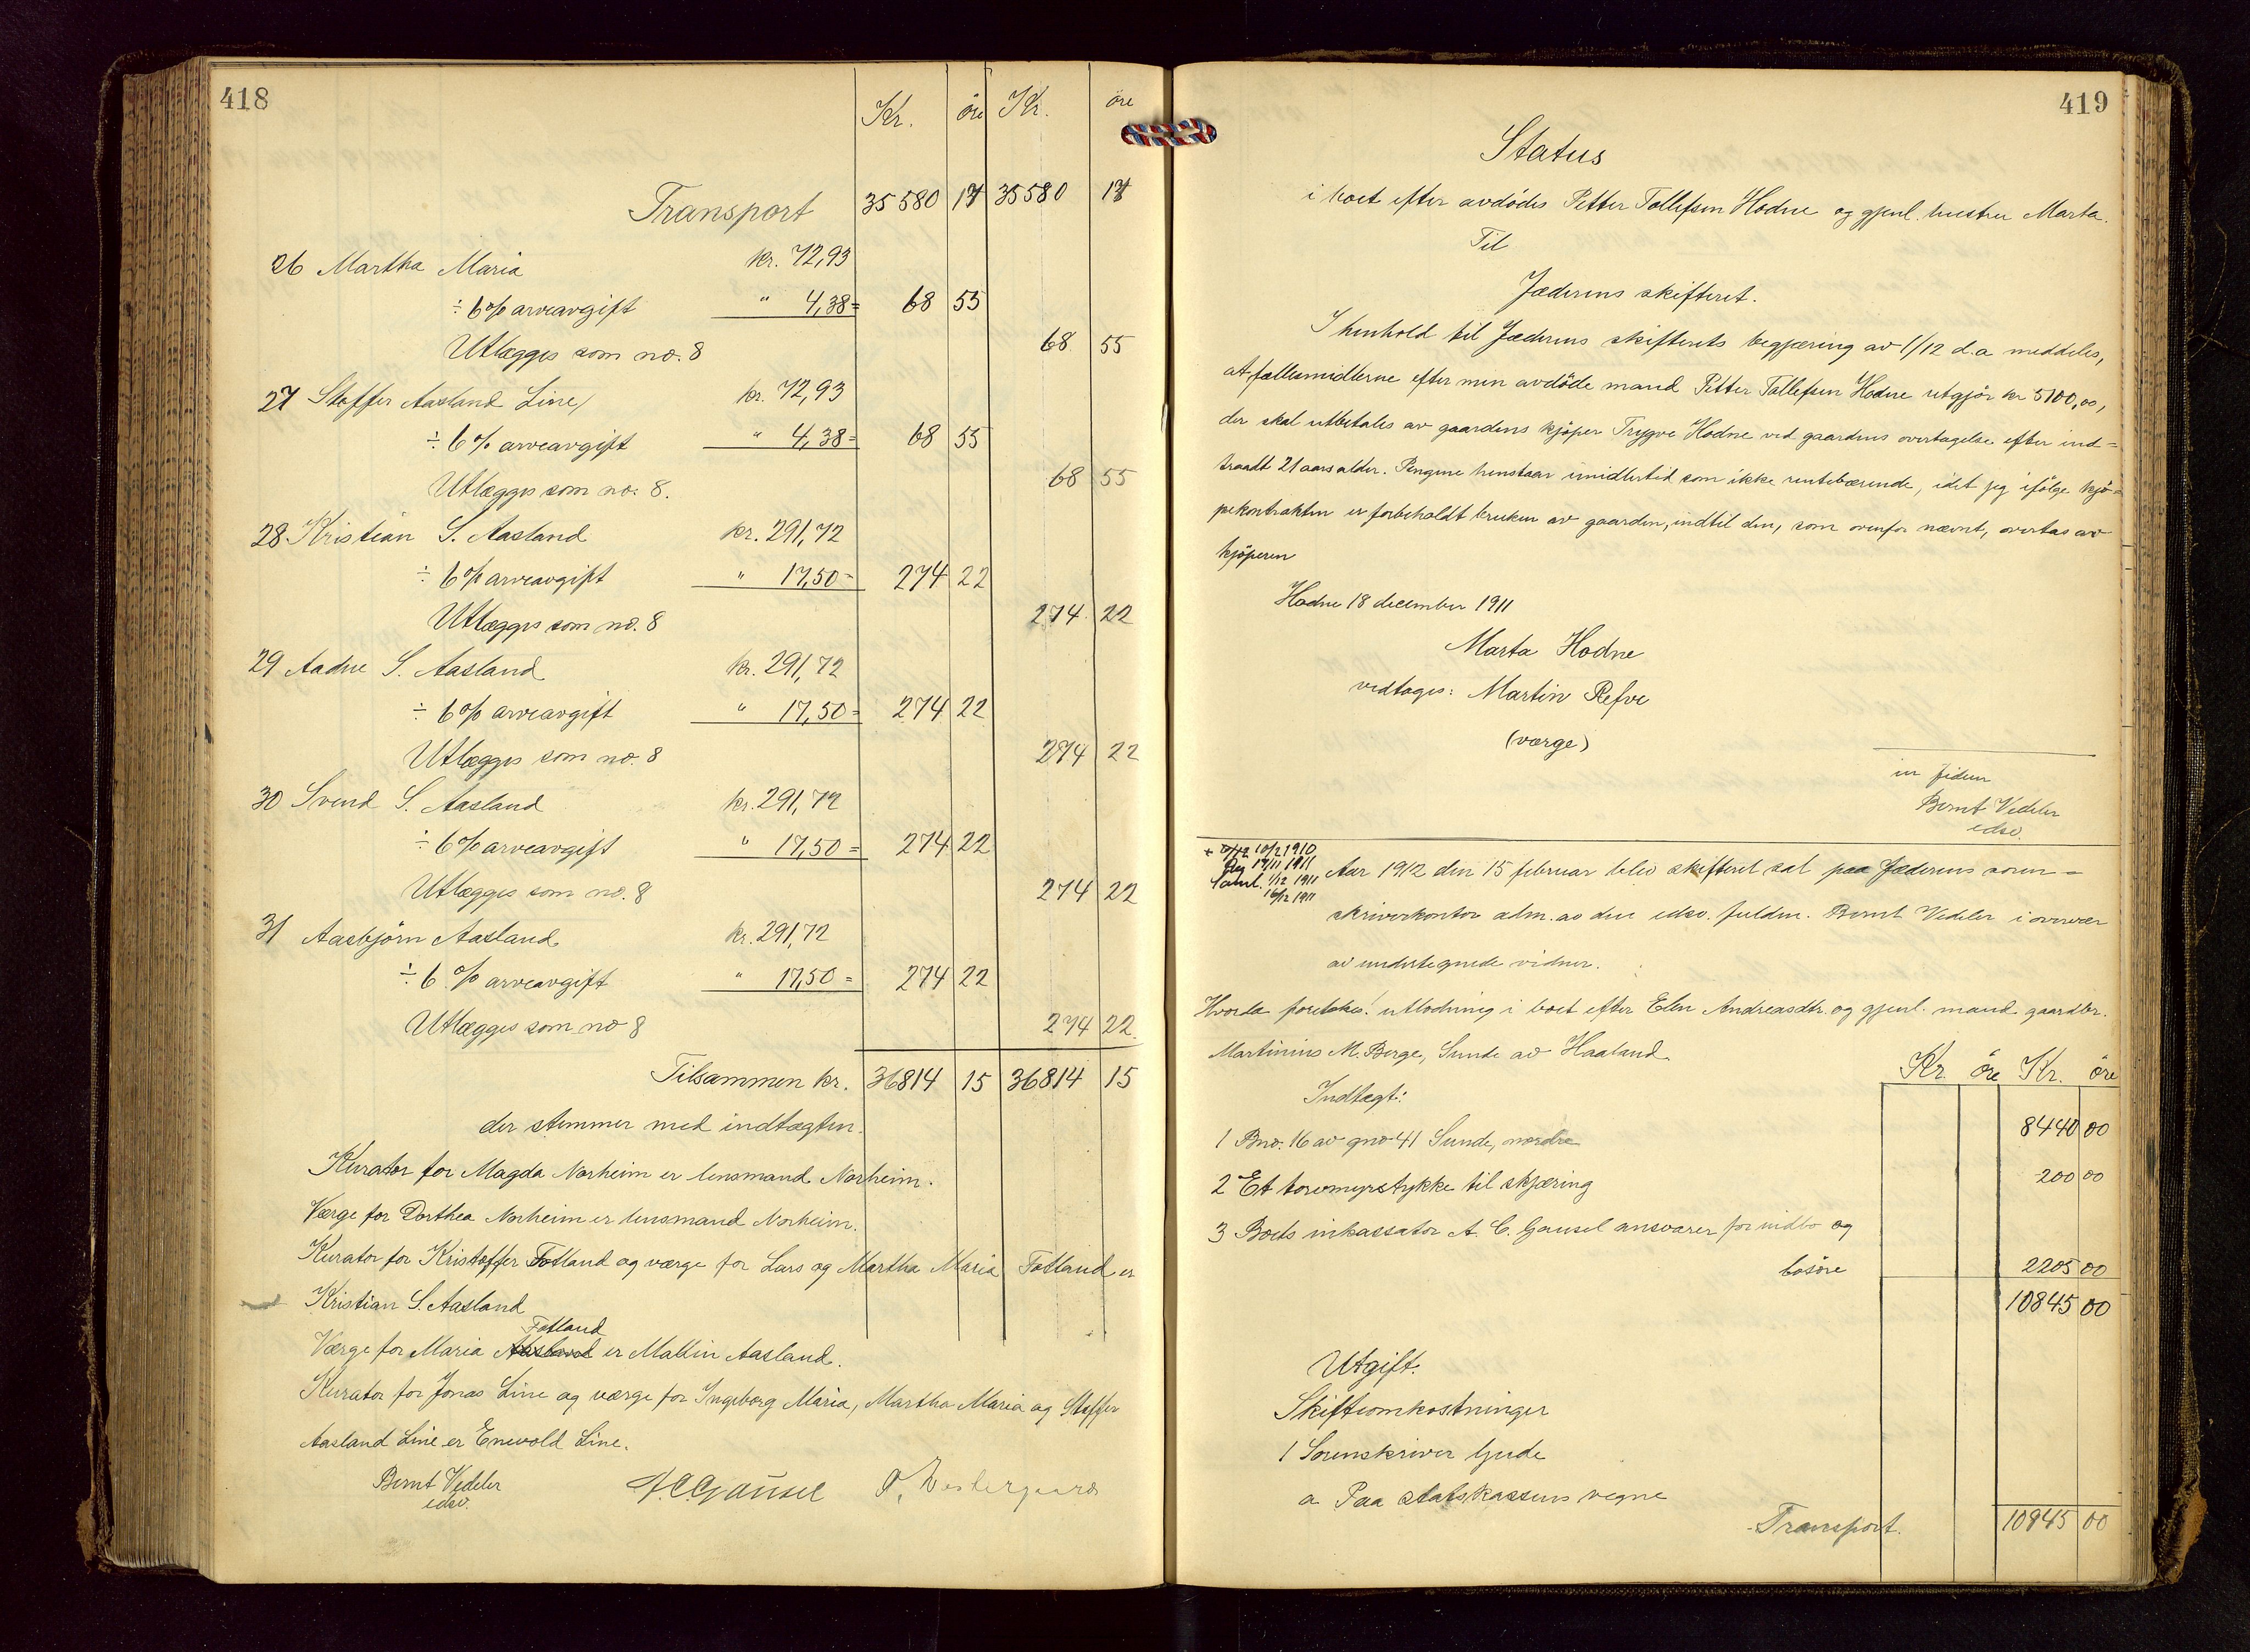 418
Kr. öre Kr. öre
Transport 35580 17 35580 17
26 Martha Maria kr. 72,93
÷ 6% arveavgift " 4,38= 68 55
Utlægges som no. 8 68 55
27 Stoffer Aasland Line, kr. 72,93
÷ 6% arveavgift " 4,38= 68 55
Utlægges som no. 8. 68 55
28 Kristian S. Aasland kr. 291,72
÷ 6% arveavgift " 17,50= 274 22
Utlægges som no. 8 274 22
29 Aadne S. Aasland kr. 291,72
÷ 6% arveavgift " 17,50= 274 22
Utlægges som no. 8 274 22
30 Svend S. Aasland kr. 291,72
÷ 6% arveavgift " 17,50= 274 22
Utlægges som no. 8 274 22
31 Aasbjörn Aasland kr. 291,72
÷ 6% arveavgift " 17,50= 274 22
Utlægges som no 8 274 22
Tilsammen kr. 36814 15 36814 15
der stemmer med indtægten.
Kurator for Magda Norheim er lensmand Norheim.
Værge for Dorthea Norheim er lensmand Norheim.
Kurator for Kristoffer Fotland og værge for Lars og Martha Maria Fotland er
Kristian S. Aasland
Fotland
Værge for Maria Aasland er Mallin Aasland.
Kurator for Jonas Line og værge for Ingeborg Maria, Martha Maria og Stoffer
Aasland Line er Enevold Line.
Bernt Vedeler A C Gausel O. Westergaard
edsv.
419
Status
i boet efter avdödes Petter Tollefsen Hodne og gjenl. hustru Marta.
Til
Jæderens skifteret.
I henhold til Jæderens skifterets begjæring av 1/12 d.a meddeles,
at fællesmidlerne efter min avdöde mand Petter Tollefsen Hodne utgjör kr 5100,00,
der skal utbetales av gaardens kjöper Trygve Hodne ved gaardens overtagelse efter ind=
traadt 21 aars alder. Pengene henstaar imidlertid som ikke rentebærende, idet jeg ifölge kjö=
pekontrakten er forbeholdt bruken av gaarden, indtil den, som ovenfor nævnt, overtas av
kjöperen
Hodne 18 december 1911
Marta Hodne
vedtages: Martin Refve
(værge)
in fidem
Bernt Vedeler
edsv.
10/2 1910
17/11 1911
1/12 1911
16/12 1911
Aar 1912 den 15 februar blev skifteret sat paa Jæderens soren=
skriverkontor alm. av den edsv. fuldm. Bernt Vedeler i overvær
av undertegnede vidner.
Hvorda foretokes: utlodning i boet efter Elen Andreasdtr. og gjenl. mand gaardbr.
Martinius M. Berge, Sunde av Haaland.
Kr. öre Kr. öre
Indtægt:
1 Bno. 16 av gno 41 Sunde, nordre 8440 00
2 Et torvmyrstykke til skjæring 200 00
3 Boets inkassator A. C. Gausel ansvarer for indbo og
lösöre 2205 00
10845 00
Utgift.
Skifteomkostninger
1 Sorenskriver Gjude
a Paa statskassens vegne
Transport. 10845 00